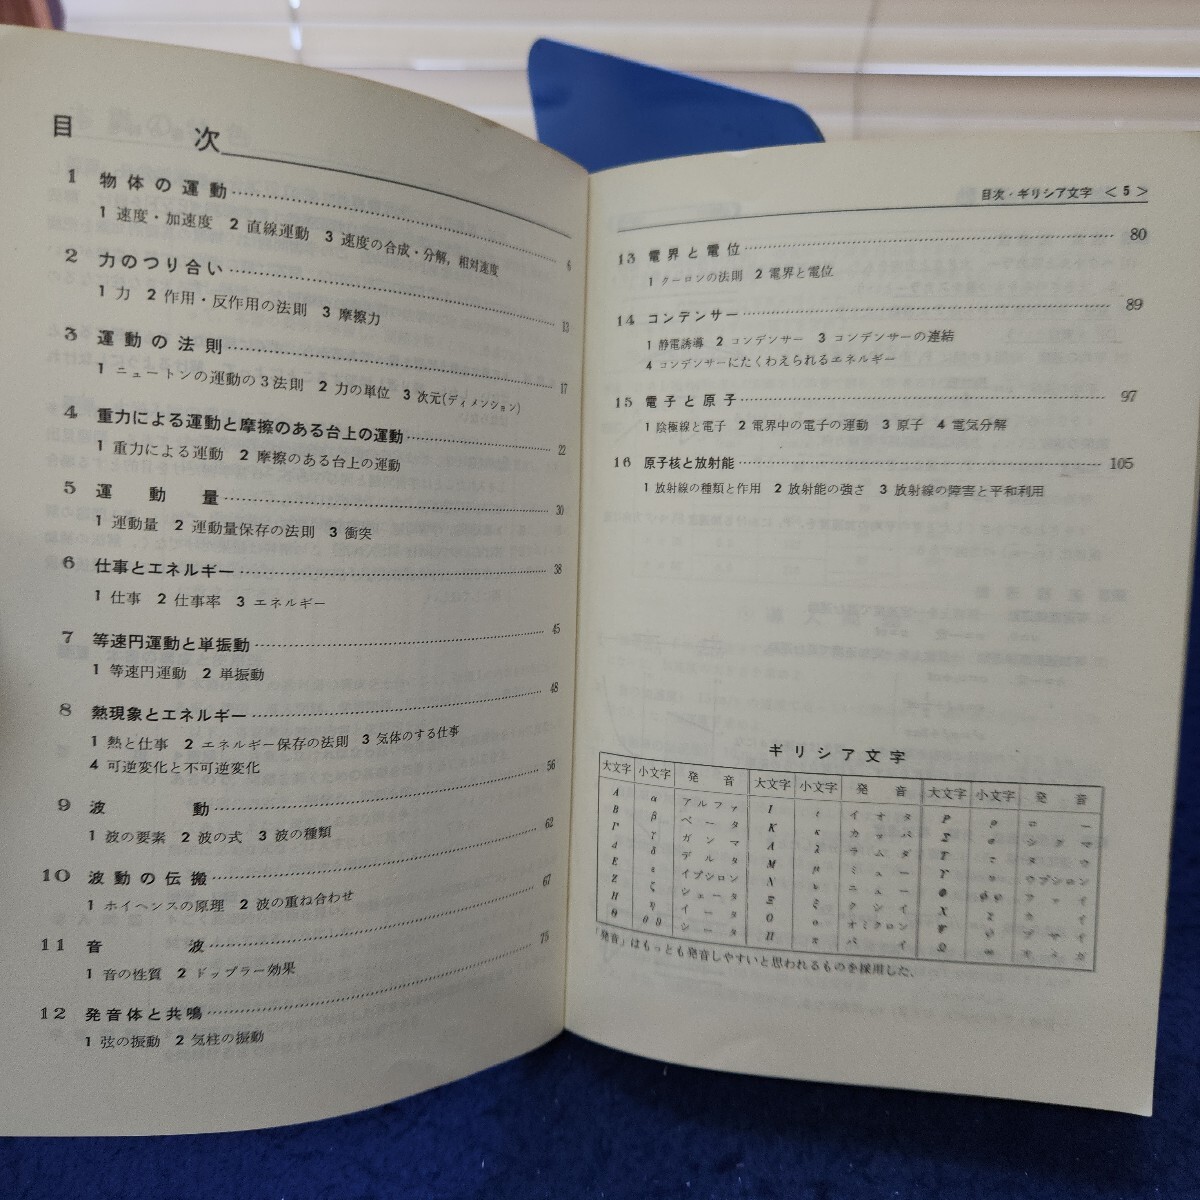 目次
1 物体の運動 6
1 速度・加速度 2 直線運動 3 速度の合成・分解，相対速度
2 力のつり合い 13
1 力 2 作用・反作用の法則 3 摩擦力
3 運動の法則 17
1 ニュートンの運動の3法則 2 力の単位 3 次元(ディメンション)
4 重力による運動と摩擦のある台上の運動 22
1 重力による運動 2 摩擦のある台上の運動
5 運動量 30
1 運動量 2 運動量保存の法則 3 衝突
6 仕事とエネルギー 38
1 仕事 2 仕事率 3 エネルギー
7 等速円運動と単振動 45
1 等速円運動 2 単振動
8 熱現象とエネルギー 48
1 熱と仕事 2 エネルギー保存の法則 3 気体のする仕事
4 可逆変化と不可逆変化
9 波動 56
1 波の要素 2 波の式 3 波の種類
10 波動の伝搬 62
1 ホイヘンスの原理 2 波の重ね合わせ
11 音波 67
1 音の性質 2 ドップラー効果
12 発音体と共鳴 75
1 弦の振動 2 気柱の振動
目次・ギリシア文字 ＜5＞
13 電界と電位 80
1 クーロンの法則 2 電界と電位
14 コンデンサー 89
1 静電誘導 2 コンデンサー 3 コンデンサーの連結
4 コンデンサーにたくわえられるエネルギー
15 電子と原子 97
1 陰極線と電子 2 電界中の電子の運動 3 原子 4 電気分解
16 原子核と放射能 105
1 放射線の種類と作用 2 放射能の強さ 3 放射線の障害と平和利用
ギリシア文字
大文字 小文字 発音 大文字 小文字 発音 大文字 小文字 発音
Α α アルファ Ι ι イオタ Ρ ρ ロー
Β β ベータ Κ κ カッパ Σ σ シグマ
Γ γ ガンマ Λ λ ラムダ Τ τ タウ
Δ δ デルタ Μ μ ミュー Υ υ ウプシロン
Ε ε イプシロン Ν ν ニュー Φ φ ファイ
Ζ ζ ジェータ Ξ ξ クシイ Χ χ カイ
Η η イータ Ο ο オミクロン Ψ ψ プサイ
Θ θ ϑ シータ Π π パイ Ω ω オメガ
「発音」はもっとも発音しやすいと思われるものを採用した．